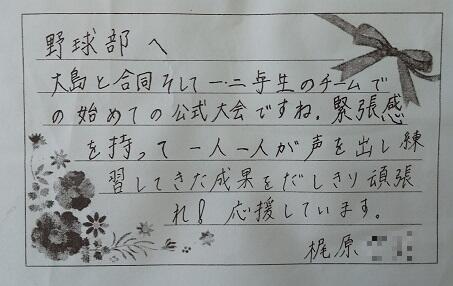 野球部へ
大島と合同そして一・二年生のチームで
の始めての公式大会ですね。緊張感
を持って一人一人が声を出し練
習してきた成果をだしきり頑張
れ！応援しています。
梶原